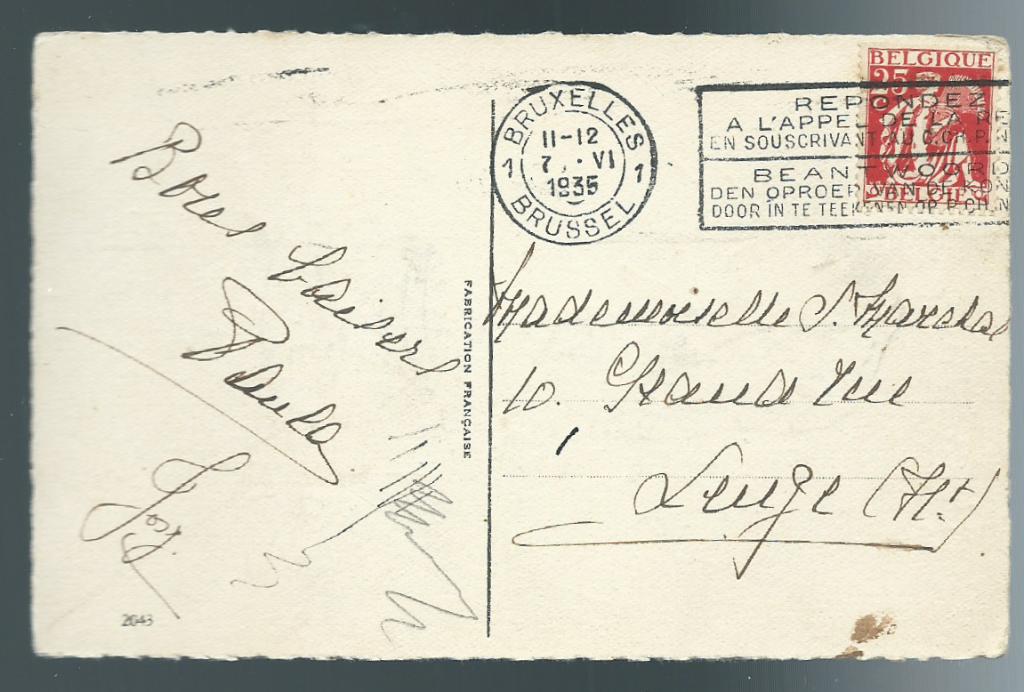 Bons baisers
Paula
José
2643
FABRICATION FRANÇAISE
BRUXELLES
1 1
11-12
7 . VI
1935
BRUSSEL
REPONDEZ
A L'APPEL DE LA RE
EN SOUSCRIVANT AU C.CH.P. N
BEANTWOORD
DEN OPROEP VAN DE KON
DOOR IN TE TEEKENEN OP P.CH. N
BELGIQUE
25
BELGIË
Mademoiselle S. Marechal
10. Grand'rue
Leuze (Ht)